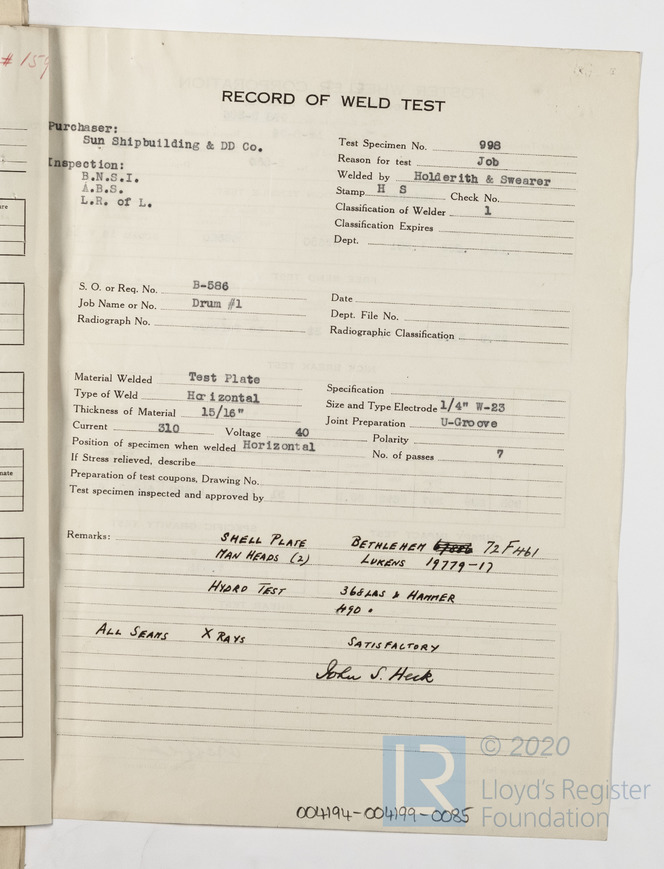 # 159
RECORD OF WELD TEST
Purchaser:
Sun Shipbuilding & DD Co.
Inspection:
B.N.S.I.
A.B.S.
L.R. of L.
Test Specimen No. 998
Reason for test Job
Welded by Holderith & Swearer
Stamp H S Check No.
Classification of Welder 1
Classification Expires
Dept.
S. O. or Req. No. B-586
Job Name or No. Drum #1
Radiograph No.
Date
Dept. File No.
Radiographic Classification
Material Welded Test Plate
Type of Weld Horizontal
Thickness of Material 15/16"
Current 310 Voltage 40
Position of specimen when welded Horizontal
If Stress relieved, describe
Preparation of test coupons, Drawing No.
Test specimen inspected and approved by
Specification
Size and Type Electrode 1/4" W-23
Joint Preparation U-Groove
Polarity
No. of passes 7
Remarks: SHELL PLATE BETHLEHEM 72F461
MAN HEADS (2) LUKENS 19779-17
HYDRO TEST 368 LBS & HAMMER
490.
ALL SEAMS X RAYS SATISFACTORY
John S. Heck
004194-004199-0085
LR
© 2020
Lloyd's Register
Foundation